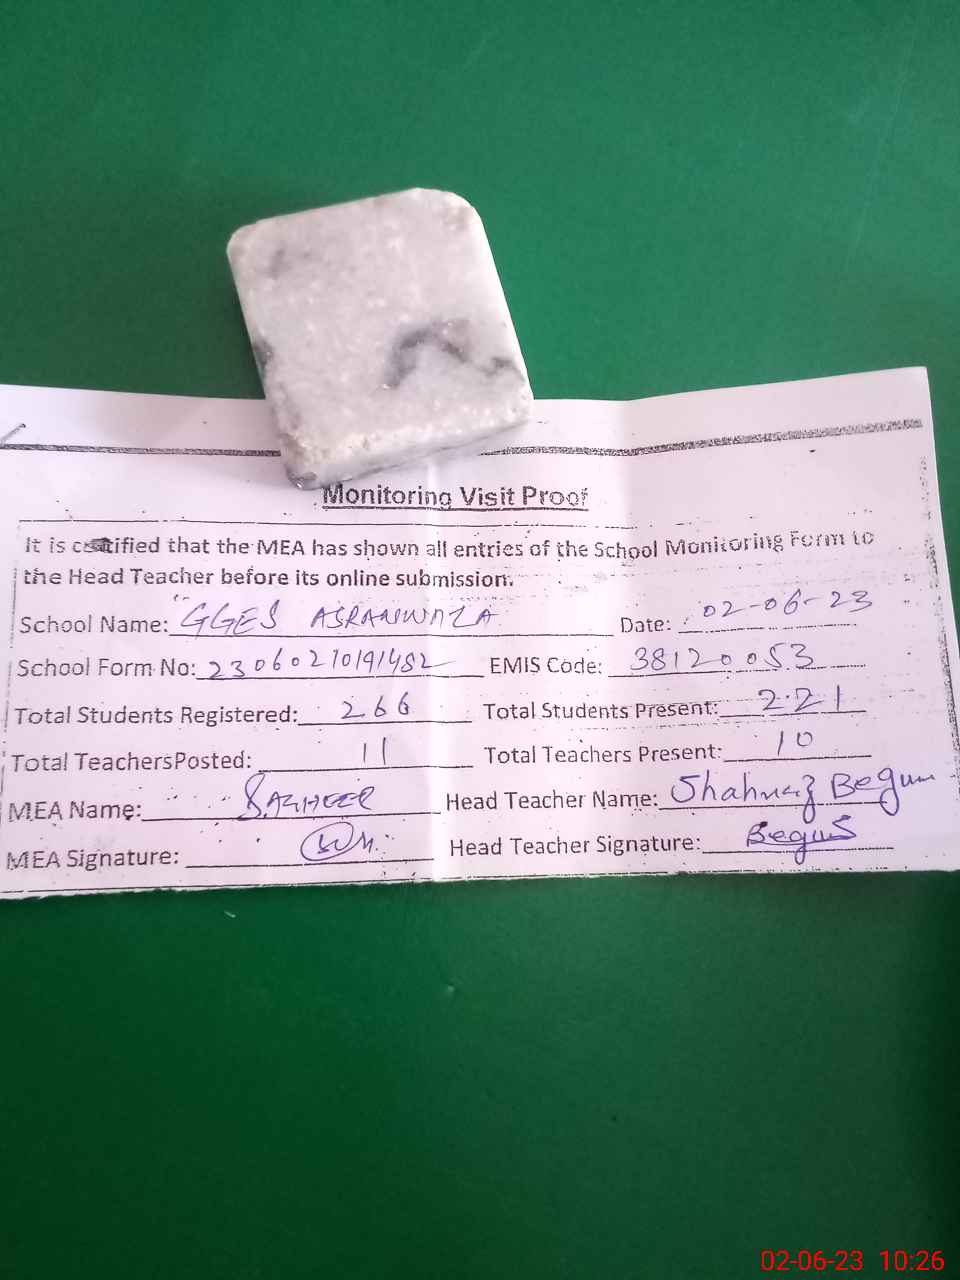 Monitoring Visit Proof
It is certified that the MEA has shown all entries of the School Monitoring Form to
the Head Teacher before its online submission.
School Name: GGES ASRANWALA Date: 02-06-23
School Form No: 230602101911482 EMIS Code: 38120053
Total Students Registered: 266 Total Students Present: 221
Total TeachersPosted: 11 Total Teachers Present: 10
MEA Name: Head Teacher Name: Shahnaz Begum
MEA Signature: Head Teacher Signature: Begum
02-06-23 10:26